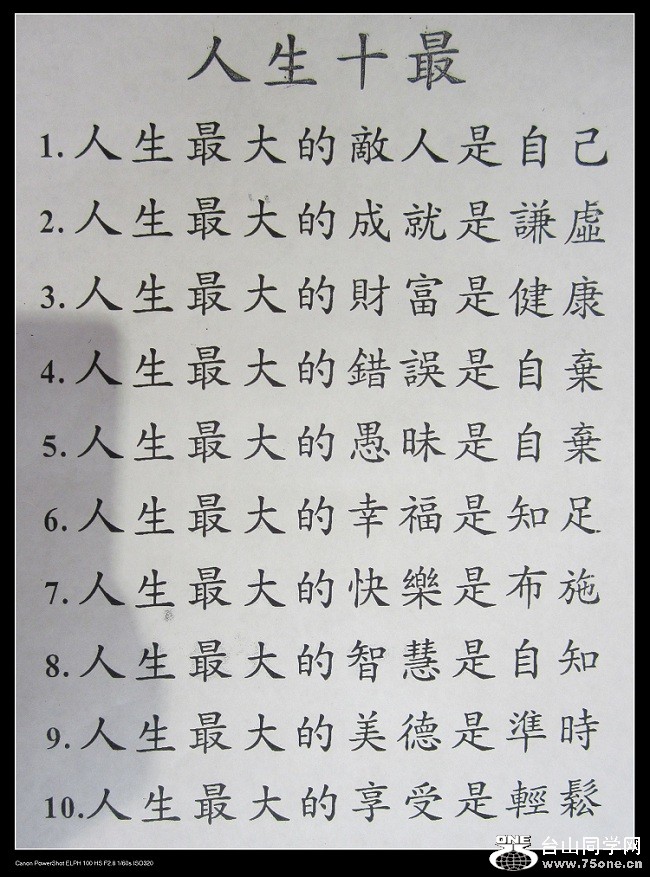 人生十最
1. 人生最大的敵人是自己
2. 人生最大的成就是謙虛
3. 人生最大的財富是健康
4. 人生最大的錯誤是自棄
5. 人生最大的愚昧是自棄
6. 人生最大的幸福是知足
7. 人生最大的快樂是布施
8. 人生最大的智慧是自知
9. 人生最大的美德是準時
10. 人生最大的享受是輕鬆
ONE
台山同学网
www.75one.cn
Canon PowerShot ELPH 100 HS F2.8 1/60s ISO320